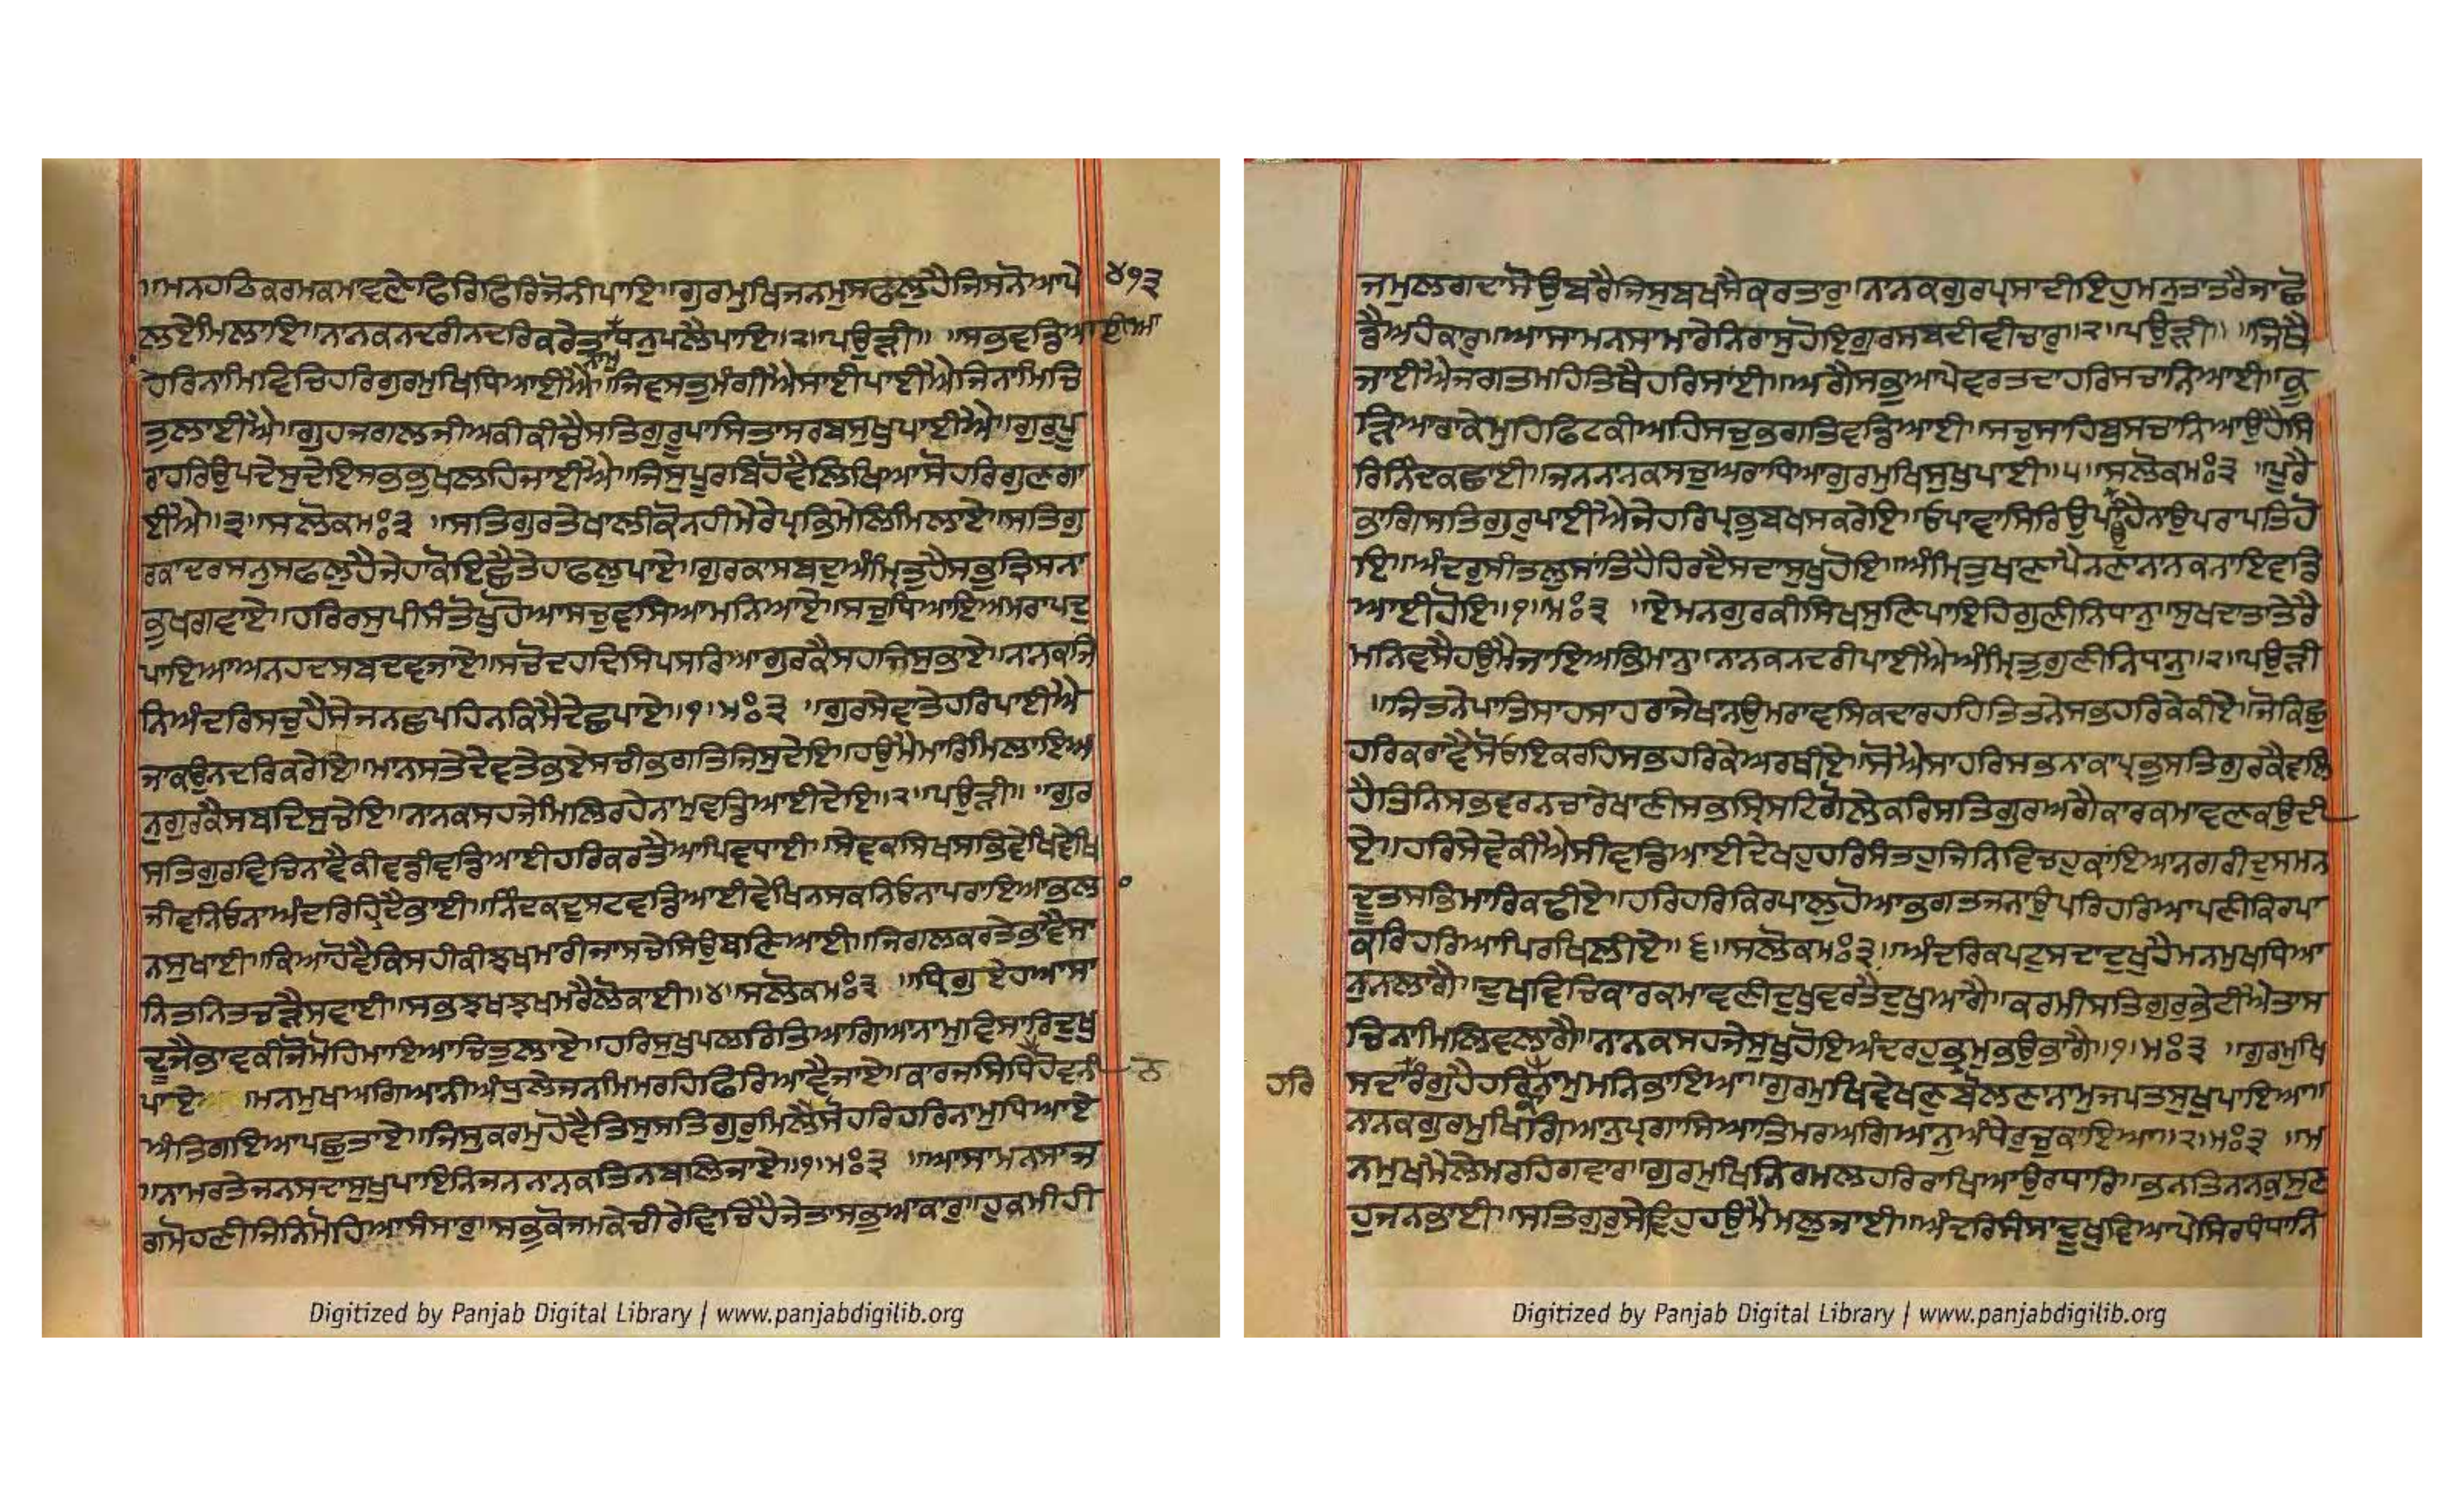 ॥ਮਨਹਠਿਕਰਮਕਮਾਵਣੇਫਿਰਿਫਿਰਿਜੋਨੀਪਾਇ॥ਗੁਰਮੁਖਿਜਨਮੁਸਫਲੁਹੈਜਿਸਨੋਆਪੇ ੪੧੩
ਲਏਮਿਲਾਇ॥ਨਾਨਕਨਦਰੀਨਦਰਿਕਰੇਤਾ ਧਨੁਪਲੈਪਾਇ॥੨॥ਪਉੜੀ॥ ॥ਸਭਵਡਿਆਈਆ
ਨਾਮ
ਹਰਿਨਾਮਿਵਿਚਿਹਰਿਗੁਰਮੁਖਿਧਿਆਈਐ॥ਜਿਵਸਤੁਮੰਗੀਐਸਾਈਪਾਈਐਜਿਨਾਮਿਚਿ
ਤੁਲਾਈਐ॥ਗੁਹਜਗਲਜੀਅਕੀਕੀਚੈਸਤਿਗੁਰੂਪਾਸਿਤਾਸਰਬਸੁਖੁਪਾਈਐ॥ਗੁਰੁਪੂ
ਰਾਹਰਿਉਪਦੇਸੁਦੇਇਸਭਭੁਖਲਹਿਜਾਈਐ॥ਜਿਸੁਪੂਰਬਿਹੋਵੈਲਿਖਿਆਸੋਹਰਿਗੁਣਗਾ
ਈਐ॥੩॥ਸਲੋਕਮਃ੩ ॥ਸਤਿਗੁਰਤੇਖਾਲੀਕੋਨਹੀਮੇਰੇਪ੍ਰਭਿਮੇਲਿਮਿਲਾਏ॥ਸਤਿਗੁ
ਰਕਾਦਰਸਨੁਸਫਲੁਹੈਜੇਹਾਕੋਇਛੇਤੇਹਾਫਲੁਪਾਏ॥ਗੁਰਕਾਸਬਦੁਅੰਮ੍ਰਿਤੁਹੈਸਭਤ੍ਰਿਸਨਾ
ਭੁਖਗਵਾਏ॥ਹਰਿਰਸੁਪੀਸੰਤੋਖੁਹੋਆਸਚੁਵਸਿਆਮਨਿਆਏ॥ਸਚੁਧਿਆਇਅਮਰਾਪਦੁ
ਪਾਇਆਅਨਹਦਸਬਦਵਜਾਏ॥ਸਚੋਦਹਦਿਸਿਪਸਰਿਆਗੁਰਕੈਸਹਜਿਸੁਭਾਏ॥ਨਾਨਕਜਿ
ਨਿਅੰਦਰਿਸਚੁਹੈਸੇਜਨਛਪਹਿਨਕਿਸੈਦੇਛਪਾਏ॥੧॥ਮਃ੩ ॥ਗੁਰਸੇਵਾਤੇਹਰਿਪਾਈਐ
ਜਾਕਉਨਦਰਿਕਰੇਇ॥ਮਾਨਸਤੇਦੇਵਤੇਭਏਸਚੀਭਗਤਿਜਿਸੁਦੇਇ॥ਹਉਮੈਮਾਰਿਮਿਲਾਇਅ
ਨੁਗੁਰਕੈਸਬਦਿਸੁਚੇਇ॥ਨਾਨਕਸਹਜੇਮਿਲਿਰਹੇਨਾਮੁਵਡਿਆਈਦੇਇ॥੨॥ਪਉੜੀ॥ ॥ਗੁਰ
ਸਤਿਗੁਰਵਿਚਿਨਾਵੈਕੀਵਡੀਵਡਿਆਈਹਰਿਕਰਤੈਆਪਿਵਧਾਈ॥ਸੇਵਕਸਿਖਸਭਿਵੇਖਿਵੇਖਿ
ਜੀਵਨਿਓਨਾਅੰਦਰਿਹਿਰਦੈਭਾਈ॥ਨਿੰਦਕਦੁਸਟਵਡਿਆਈਵੇਖਿਨਸਕਨਿਓਨਾਪਰਾਇਆਭਲਾ
ਨਸੁਖਾਈ॥ਕਿਆਹੋਵੈਕਿਸਹੀਕੀਝਖਮਾਰੀਜਾਸਚੇਸਿਉਬਣਿਆਈ॥ਜਿਗਲਕਰਤੇਭਾਵੈਸਾ
ਨਿਤਨਿਤਚੜੈਸਵਾਈ॥ਸਭਝਖਝਖਮਰੈਲੋਕਾਈ॥੪॥ਸਲੋਕਮਃ੩ ॥ਧ੍ਰਿਗੁਏਹਆਸਾ
ਦੂਜੈਭਾਵਕੀਜੋਮੋਹਿਮਾਇਆਚਿਤੁਲਾਏ॥ਹਰਿਸੁਖੁਪਲਰਿਤਿਆਗਿਆਨਾਮੁਵਿਸਾਰਿਦੁਖੁ
ਪਾਏ ॥ਮਨਮੁਖਅਗਿਆਨੀਅੰਧੁਲੇਜਨਮਿਮਰਹਿਫਿਰਿਆਵੈਜਾਏ॥ਕਾਰਜਸਿਧਿਹੋਵਨੀ ਨ
ਅੰਤਿਗਇਆਪਛੁਤਾਏ॥ਜਿਸੁਕਰਮੁਹੋਵੈਤਿਸੁਸਤਿਗੁਰੁਮਿਲੈਸੋਹਰਿਹਰਿਨਾਮੁਧਿਆਏ
॥ਨਾਮਰਤੇਜਨਸਦਾਸੁਖੁਪਾਇਨਿਜਨਨਾਨਕਤਿਨਬਲਿਜਾਏ॥੧॥ਮਃ੩ ॥ਆਸਾਮਨਸਾਜ
ਗਮੋਹਣੀਜਿਨਿਮੋਹਿਆਸੰਸਾਰੁ॥ਸਭੁਕੋਜਮਕੇਚੀਰੇਵਿਚਿਹੈਜੇਤਾਸਭੁਆਕਾਰੁ॥ਹੁਕਮੀਹੀ
ਜਮੁਲਗਦਾਸੋਉਬਰੈਜਿਸੁਬਖਸੈਕਰਤਾਰੁ॥ਨਾਨਕਗੁਰਪ੍ਰਸਾਦੀਇਹੁਮਨੁਤਾਤਰੈਜਾਛੋ
ਡੈਅਹੰਕਾਰੁ॥ਆਸਾਮਨਸਾਮਾਰੇਨਿਰਾਸੁਹੋਇਗੁਰਸਬਦੀਵੀਚਾਰੁ॥੨॥ਪਉੜੀ॥ ॥ਜਿਥੈ
ਜਾਈਐਜਗਤਮਹਿਤਿਥੈਹਰਿਸਾਂਈ॥ਅਗੈਸਭੁਆਪੇਵਰਤਦਾਹਰਿਸਚਾਨਿਆਈ॥ਕੂ
ੜਿਆਰਾਕੇਮੁਹਿਫਿਟਕੀਅਹਿਸਚੁਭਗਤਿਵਡਿਆਈ॥ਸਚੁਸਾਹਿਬੁਸਚਾਨਿਆਉਹੈਸਿ
ਰਿਨਿੰਦਕਛਾਈ॥ਜਨਨਾਨਕਸਚੁਅਰਾਧਿਆਗੁਰਮੁਖਿਸੁਖੁਪਾਈ॥੫॥ਸਲੋਕਮਃ੩ ॥ਪੂਰੈ
ਭਾਗਿਸਤਿਗੁਰੁਪਾਈਐਜੇਹਰਿਪ੍ਰਭੁਬਖਸਕਰੇਇ॥ਓਪਾਵਾਸਿਰਿਉਪਾਉਹੈਨਾਉਪਰਾਪਤਿਹੋ
ਇ॥ਅੰਦਰੁਸੀਤਲੁਸਾਂਤਿਹੈਹਿਰਦੈਸਦਾਸੁਖੁਹੋਇ॥ਅੰਮ੍ਰਿਤੁਖਾਣਾਪੈਨਣਾਨਾਨਕਨਾਇਵਡਿ
ਆਈਹੋਇ॥੧॥ਮਃ੩ ॥ਏਮਨਗੁਰਕੀਸਿਖਸੁਣਿਪਾਇਹਿਗੁਣੀਨਿਧਾਨੁ॥ਸੁਖਦਾਤਾਤੇਰੈ
ਮਨਿਵਸੈਹਉਮੈਜਾਇਅਭਿਮਾਨੁ॥ਨਾਨਕਨਦਰੀਪਾਈਐਅੰਮ੍ਰਿਤੁਗੁਣੀਨਿਧਾਨੁ॥੨॥ਪਉੜੀ
॥ਜਿਤਨੇਪਾਤਿਸਾਹਸਾਹਰਾਜੇਖਾਨਉਮਰਾਵਸਿਕਦਾਰਹਹਿਤਿਤਨੇਸਭਹਰਿਕੇਕੀਏ॥ਜੋਕਿਛੁ
ਹਰਿਕਰਾਵੈਸੋਓਇਕਰਹਿਸਭਹਰਿਕੇਅਰਥੀਏ॥ਸੋਐਸਾਹਰਿਸਭਨਾਕਾਪ੍ਰਭੁਸਤਿਗੁਰਕੈਵਲਿ
ਹੈਤਿਨਿਸਭਵਰਨਚਾਰੇਖਾਣੀਸਭਸ੍ਰਿਸਟਿਗੋਲੇਕਰਿਸਤਿਗੁਰਅਗੈਕਾਰਕਮਾਵਣਕਉਦੀ
ਏ॥ਹਰਿਸੇਵੇਕੀਐਸੀਵਡਿਆਈਦੇਖਹੁਹਰਿਸੰਤਹੁਜਿਨਿਵਿਚਹੁਕਾਂਇਆਨਗਰੀਦੁਸਮਨ
ਦੂਤਸਭਿਮਾਰਿਕਢੀਏ॥ਹਰਿਹਰਿਕਿਰਪਾਲੁਹੋਆਭਗਤਜਨਾਉਪਰਿਹਰਿਆਪਣੀਕਿਰਪਾ
ਕਰਿਹਰਿਆਪਿਰਖਿਲੀਏ॥੬॥ਸਲੋਕਮਃ੩॥ਅੰਦਰਿਕਪਟੁਸਦਾਦੁਖੁਹੈਮਨਮੁਖਧਿਆ
ਨੁਨਲਾਗੈ॥ਦੁਖਵਿਚਿਕਾਰਕਮਾਵਣੀਦੁਖੁਵਰਤੈਦੁਖੁਆਗੈ॥ਕਰਮੀਸਤਿਗੁਰੁਭੇਟੀਐਤਾਸ
ਚਿਨਾਮਿਲਿਵਲਾਗੈ॥ਨਾਨਕਸਹਜੇਸੁਖੁਹੋਇਅੰਦਰਹੁਭ੍ਰਮੁਭਉਭਾਗੈ॥੧॥ਮਃ੩ ॥ਗੁਰਮੁਖਿ
ਹਰਿ ਸਦਾਰੰਗੁਹੈਹਰਿਨਾਮੁਮਨਿਭਾਇਆ॥ਗੁਰਮੁਖਿਵੇਖਣੁਬੋਲਣਾਨਾਮੁਜਪਤਸੁਖੁਪਾਇਆ॥
ਨਾਨਕਗੁਰਮੁਖਿਗਿਆਨੁਪ੍ਰਗਾਸਿਆਤਿਮਰਅਗਿਆਨੁਅੰਧੇਰੁਚੁਕਾਇਆ॥੨॥ਮਃ੩ ॥ਮ
ਨਮੁਖਮੈਲੇਮਰਹਿਗਵਾਰ॥ਗੁਰਮੁਖਿਨਿਰਮਲਹਰਿਰਾਖਿਆਉਰਧਾਰਿ॥ਭਨਤਿਨਾਨਕੁਸੁਣ
ਹੁਜਨਭਾਈ॥ਸਤਿਗੁਰੁਸੇਵਿਹੁਹਉਮੈਮਲੁਜਾਈ॥ਅੰਦਰਿਸੰਸਾਦੂਖੁਵਿਆਪੇਸਿਰਧੰਧਾਨਿ
Digitized by Panjab Digital Library | www.panjabdigilib.org
Digitized by Panjab Digital Library | www.panjabdigilib.org